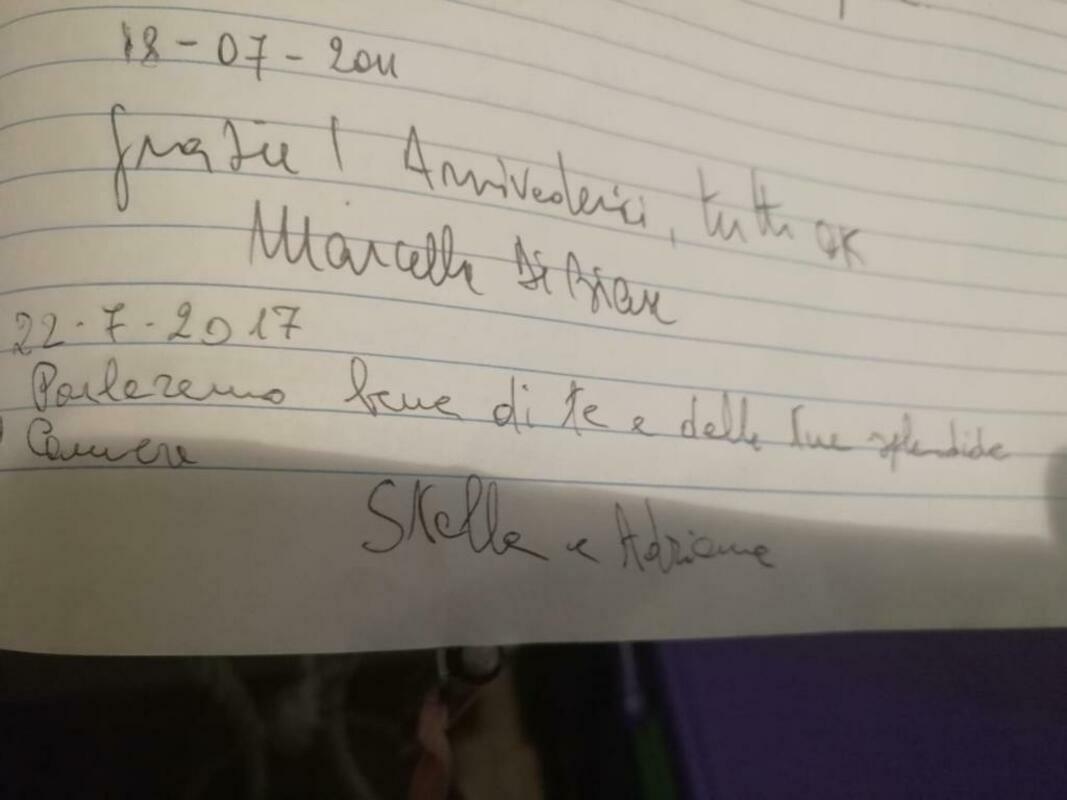 18-07-2011
Grazie! Arrivederci, tutto OK
Marcella Di
22.7.2017
Parleremo bene di te e delle tue splendide
Camere
Stella e Adriana